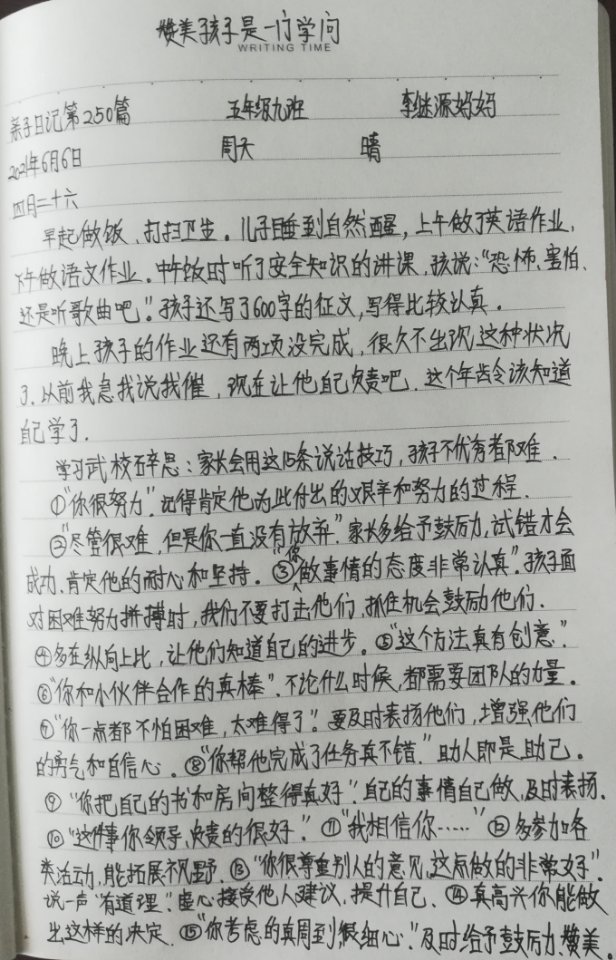 赞美孩子是一门学问
WRITING TIME
亲子日记第250篇 五年级九班 李继源妈妈
2021年6月6日 周天 晴
四月二十六
早起做饭、打扫卫生。儿子睡到自然醒，上午做了英语作业，
下午做语文作业。中午饭时听了安全知识的讲课，孩说：“恐怖、害怕、
还是听歌曲吧”。孩子还写了600字的征文，写得比较认真。
晚上孩子的作业还有两项没完成，很久不出现这种状况
了。以前我急我说我催，现在让他自己负责吧。这个年龄该知道
自己学了。
学习武校辞思：家长会用这15条说话技巧，孩子不优秀都难。
①“你很努力”。记得肯定他为此付出的艰辛和努力的过程。
②“尽管很难，但是你一直没有放弃”。家长多给予鼓励，试错才会
成功。肯定他的耐心和坚持。③“你做事情的态度非常认真”。孩子面
对困难努力拼搏时，我们不要打击他们，抓住机会鼓励他们。
④多在纵向上比，让他们知道自己的进步。⑤“这个方法真有创意”。
⑥“你和小伙伴合作的真棒”。不论什么时候，都需要团队的力量。
⑦“你一点都不怕困难，太难得了”。要及时表扬他们，增强他们
的勇气和自信心。⑧“你帮他完成了任务真不错”。助人即是助己。
⑨“你把自己的书和房间整得真好”。自己的事情自己做，及时表扬。
⑩“这件事你领导、负责的很好”。⑪“我相信你……”⑫多参加各
类活动，能拓展视野。⑬“你很尊重别人的意见，这点做的非常好”。
说一声“有道理”。虚心接受他人建议，提升自己。⑭真高兴你能做
出这样的决定。⑮“你考虑的真周到很细心”。及时给予鼓励、赞美。